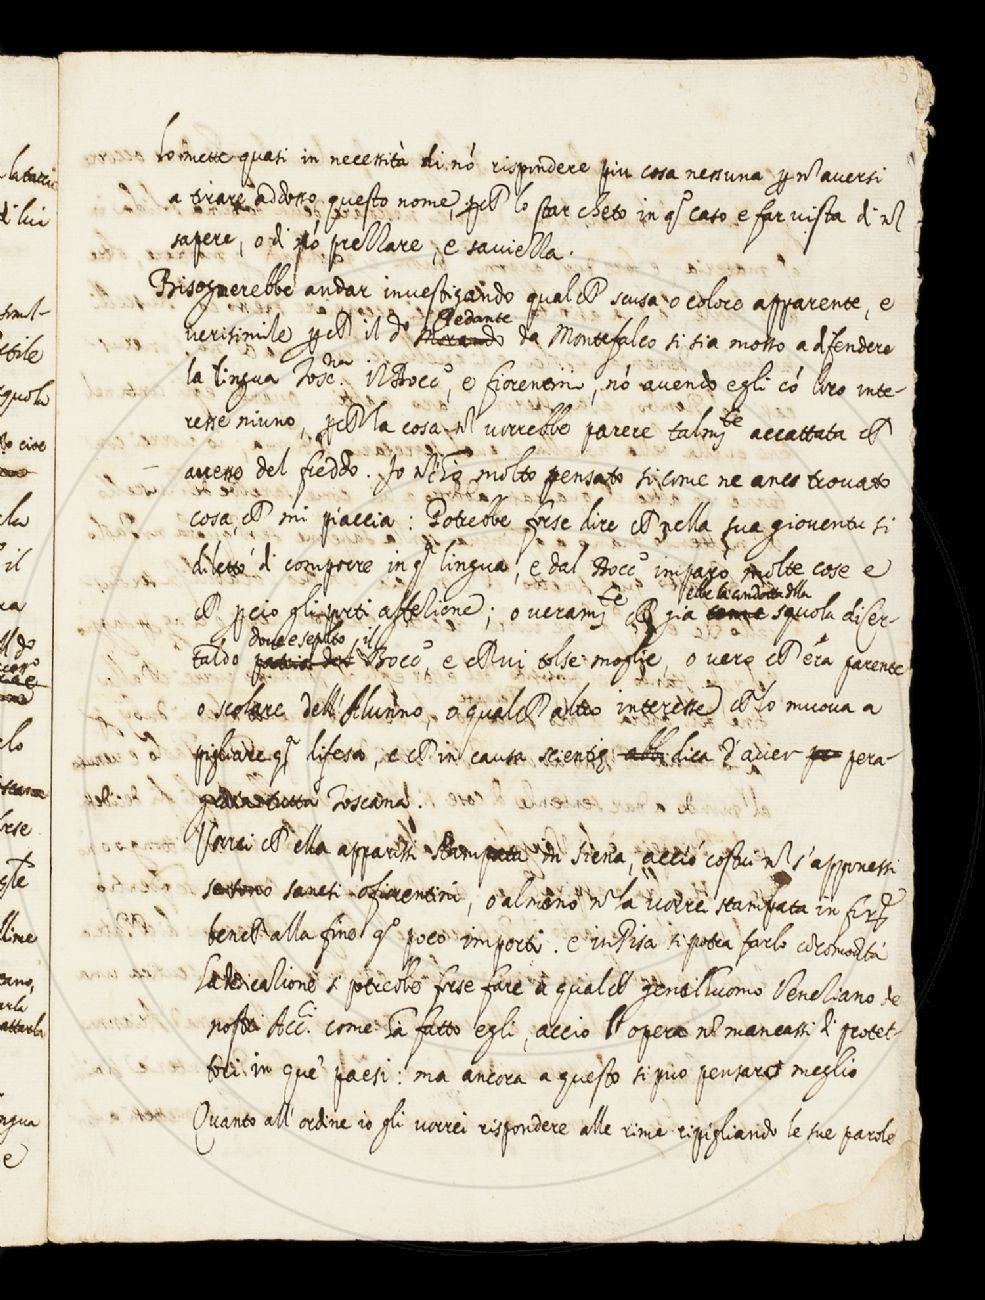 lo mette quasi in necessità di nō rispondere piu cosa nessuna ꝑ nō aversi
a tirare addosso questo nome, ꝑche lo star cheto in qº caso e far vista di nō
sapere, o di nō prellare, e saviezza.
Bisognerebbe andar investigando qualche scusa o colore apparente, e
verisimile ꝑche il dº Pedante da Montefalco si sia mosso a difendere
la lingua Toscna. il Boccº, e fiorentin, nō avendo egli cō loro inte-
resse niuno, ꝑche la cosa nō vorrebbe parere talmte accattata che
avesse del freddo. Io nō ci ho molto pensato si come ne anco trovato
cosa che mi piaccia: Potrebbe forse dire che nella sua gioventu si
dilettò di comporre in qª lingua, e dal Boccº imparò molte cose e
che ꝑcio gli porti affezione; o veramte che gia ebbe la condotta della squola di Cer-
taldo dove e sepolto il Boccº, e che vi tolse moglie, o vero che era parente
o scolare dell'Alunno, o qualche altro interesse che lo muova a
pigliare qª difesa, e che in causa dica d'aver pera-
grata tutta Toscana.
Vorrei che ella apparissi stampata in Siena, acciò costui nō s'apponessi
se sono sanesi o fiorentini, o almeno nō la vorrei stampata in
benche alla fine qº poco importi. e in Pisa si potra farlo
La dedicazione si potrebbe forse fare a qualche gentilluomo Veneziano de
nostri Accⁱ. come ha fatto egli, accio l'opera nō mancassi di protet-
tori in que' paesi: ma ancora a questo si puo pensare meglio
Quanto all'ordine io gli vorrei rispondere alle rime ripigliando le sue parole